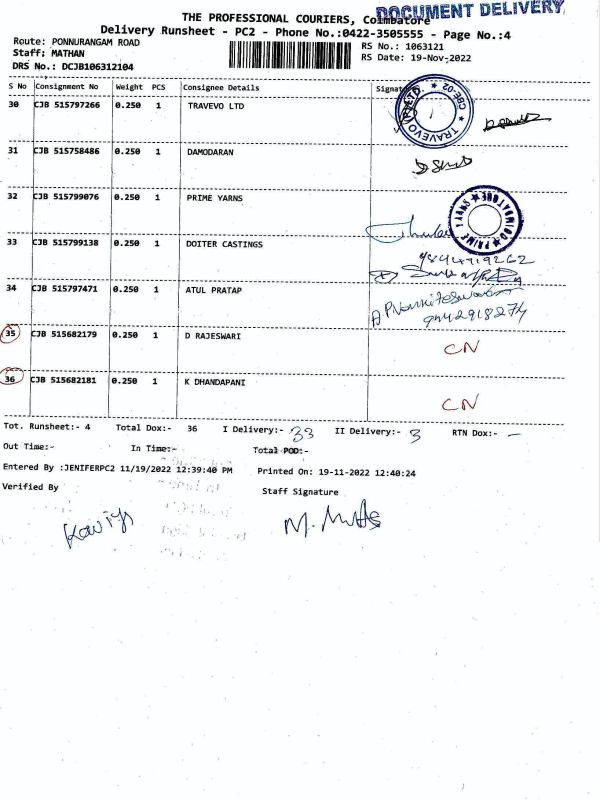 DOCUMENT DELIVERY
THE PROFESSIONAL COURIERS, Coimbatore
Delivery Runsheet - PC2 - Phone No.:0422-3505555 - Page No.:4
Route: PONNURANGAM ROAD
RS No.: 1063121
Staff: MATHAN
RS Date: 19-Nov-2022
DRS No.: DCJB106312104
S No Consignment No Weight PCS Consignee Details Signature
30 CJB 515797266 0.250 1 TRAVEVO LTD
TRAVEVO CBE-02
31 CJB 515758486 0.250 1 DAMODARAN
32 CJB 515799076 0.250 1 PRIME YARNS
PRIME YARNS COIMBATORE
33 CJB 515799138 0.250 1 DOITER CASTINGS
34 CJB 515797471 0.250 1 ATUL PRATAP
9442918274
35 CJB 515682179 0.250 1 D RAJESWARI CN
36 CJB 515682181 0.250 1 K DHANDAPANI CN
Tot. Runsheet:- 4 Total Dox:- 36 I Delivery:- 33 II Delivery:- 3 RTN Dox:- -
Out Time:- In Time:- Total POD:-
Entered By :JENIFERPC2 11/19/2022 12:39:40 PM Printed On: 19-11-2022 12:40:24
Verified By Staff Signature